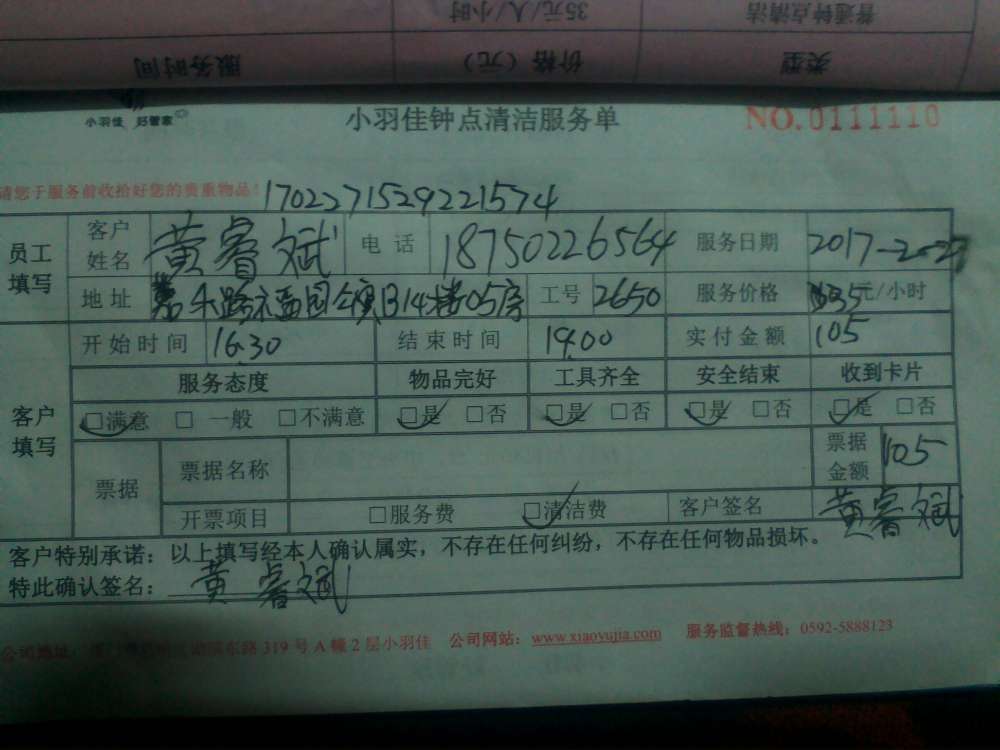 普通钟点清洁 35元/人/小时
类型 价格（元） 服务时间
小羽佳 好管家
小羽佳钟点清洁服务单
NO.0111110
请您于服务前收拾好您的贵重物品！
1702271529221574
员工填写 客户姓名 黄睿斌 电话 18750226564 服务日期 2017-2-27
地址 B14楼05房 工号 2650 服务价格 35元/小时
客户填写 开始时间 16:30 结束时间 19:00 实付金额 105
服务态度 物品完好 工具齐全 安全结束 收到卡片
□满意 □一般 □不满意 □是 □否 □是 □否 □是 □否 □是 □否
票据 票据名称 票据金额 105
开票项目 □服务费 □清洁费 客户签名 黄睿斌
客户特别承诺：以上填写经本人确认属实，不存在任何纠纷，不存在任何物品损坏。
特此确认签名：黄睿斌
公司地址： 东路319号A幢2层小羽佳 公司网站：www.xiaoyujia.com 服务监督热线：0592-5888123